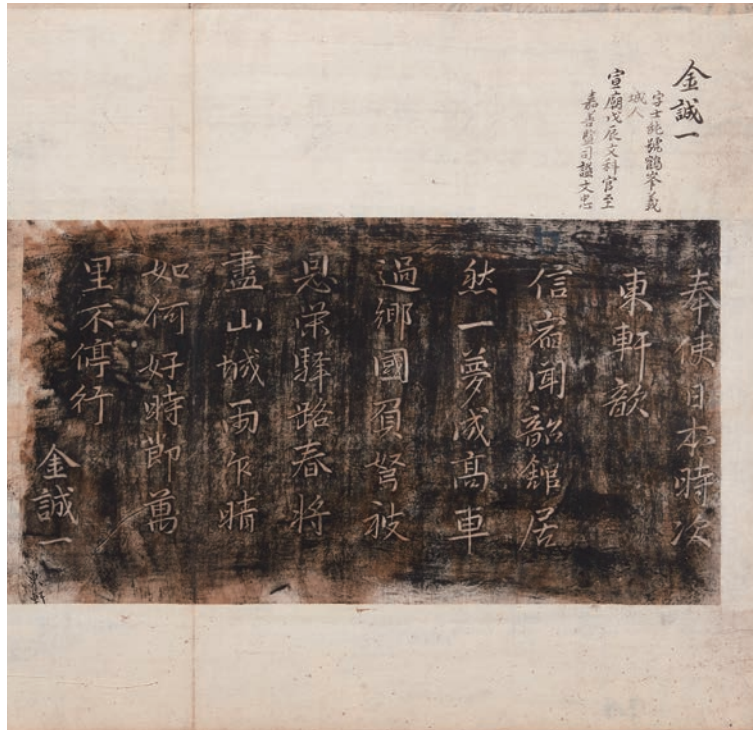 金誠一
字士純號鶴峯義
城人
宣廟戊辰文科官至
嘉善監司諡文忠
奉使日本時次
東軒韻
信宿聞韶館居
然一夢成高車
過鄉國負弩被
恩榮驛路春將
盡山城雨乍晴
如何好時節萬
里不停行
金誠一